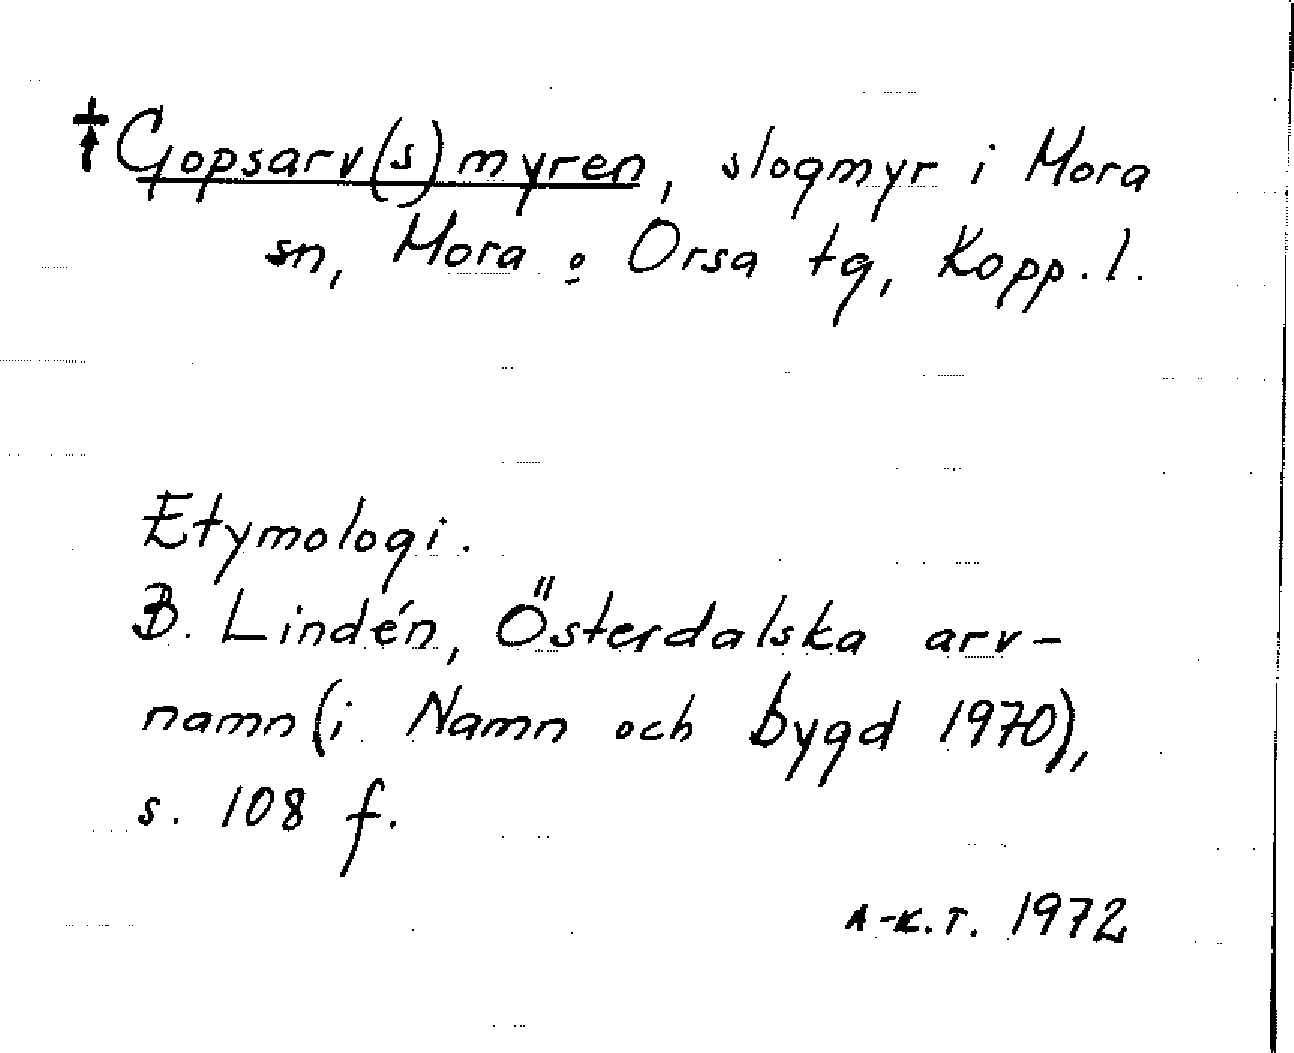 †Gopsarv(s)myren, slogmyr i Mora
sn, Mora o Orsa tg, Kopp. l.
Etymologi.
B. Lindén, Österdalska arv-
namn (i Namn och bygd 1970),
s. 108 f.
A-K.T. 1972